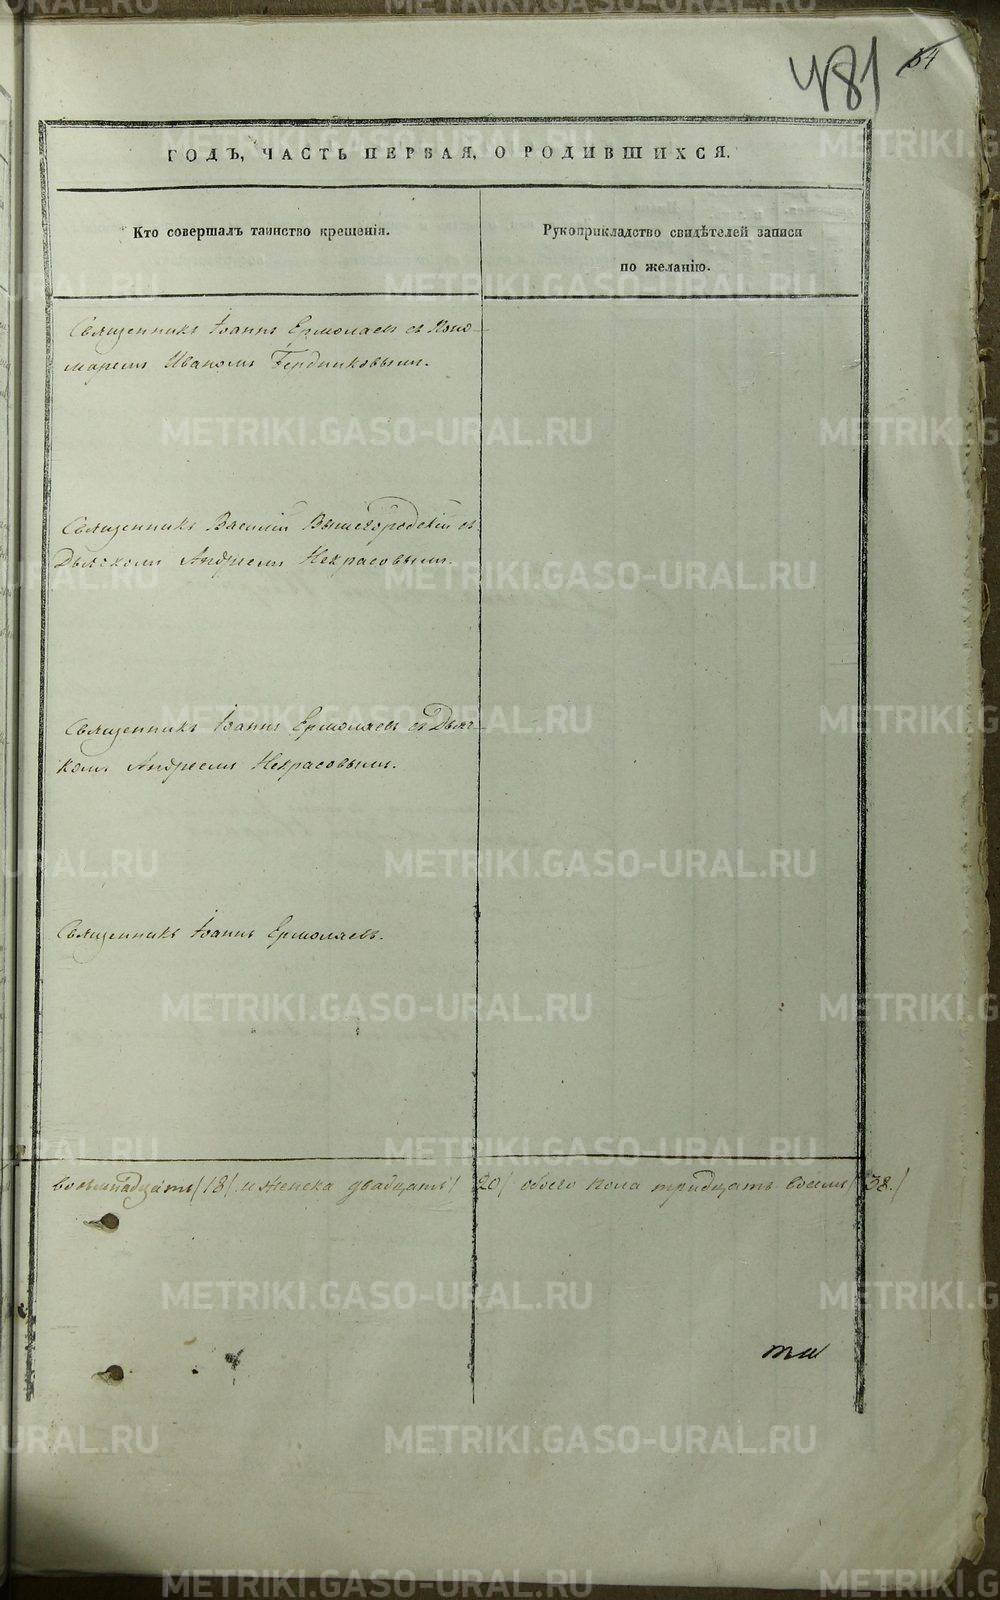 481 54
ГОДЪ, ЧАСТЬ ПЕРВАЯ, О РОДИВШИХСЯ.
Кто совершалъ таинство крещенія.
Рукоприкладство свидѣтелей записи
по желанію.
Священникъ Іоаннъ Ермолаевъ съ Поно-
маремъ Иваномъ Бердниковымъ.
Священникъ Василій Вышегородскій съ
Дьячкомъ Андреемъ Некрасовымъ.
Священникъ Іоаннъ Ермолаевъ съ Дьяч-
комъ Андреемъ Некрасовымъ.
Священникъ Іоаннъ Ермолаевъ.
восемнадцать /18/ и женска двадцать /20/ обоего пола тридцать восемь /38./
METRIKI.GASO-URAL.RU